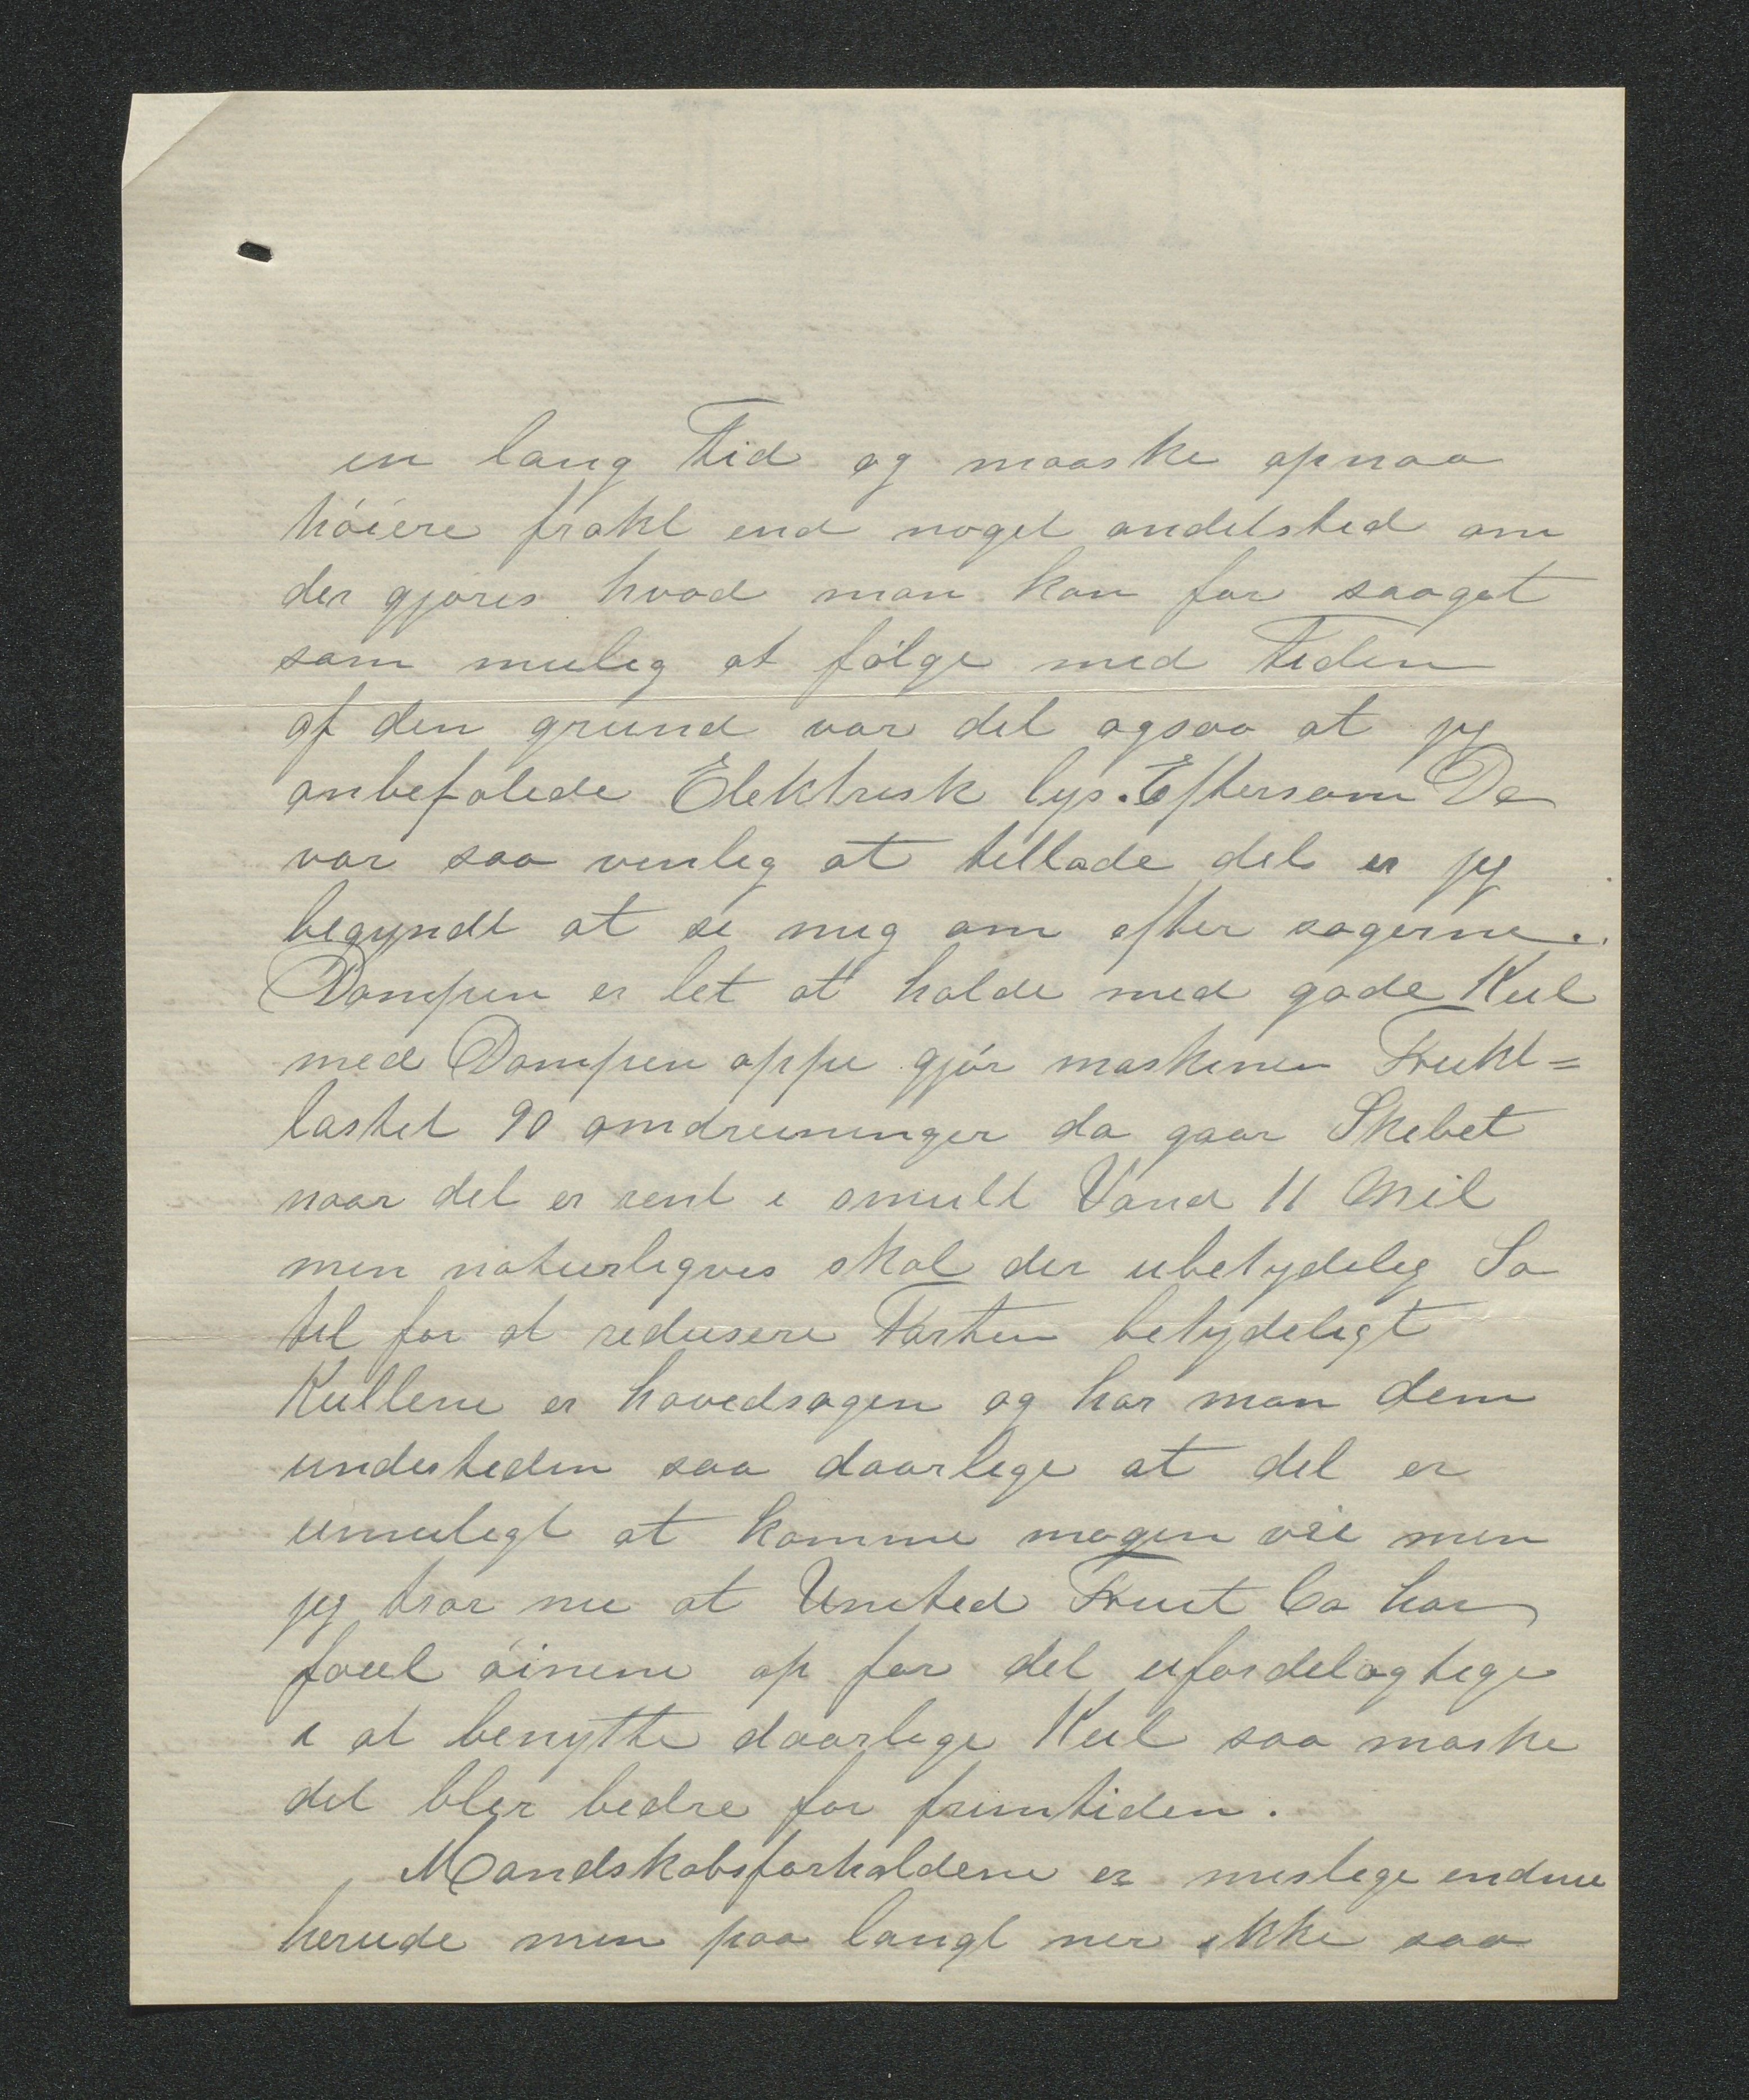 en lang Tid og maaske opnaa
höiere frakt end noget andetsted om
der gjøres hvad man kan for saagat
som mulig at følge med Tiden
af den grund var det ogsaa at jeg
anbefalede Elektrisk lys. Eftersom De
var saa venlig at tillade det er jeg
begyndt at se mig om efter sagerne.
Dampen er let at holde med gode Kul
med Dampen oppe gjör maskinen Frukt=
lastet 90 omdreininger da gaar Skibet
naar det er rent i smult Vand 11 Mil
men naturligvis skal der ubetydelig Sø
til for at redusere Farten betydeligt
Kullene er hovedsagen og har man dem
undertiden saa daarlige at det er
umuligt at komme nogen vei men
jeg tror nu at United Fruit Co har
faaet öinene op for det ufordelagtige
i at benytte daarlige Kul saa maske
det blir bedre for fremtiden.
Mandskabsforholdene er mislige endnu
herude men paa langt nær ikke saa